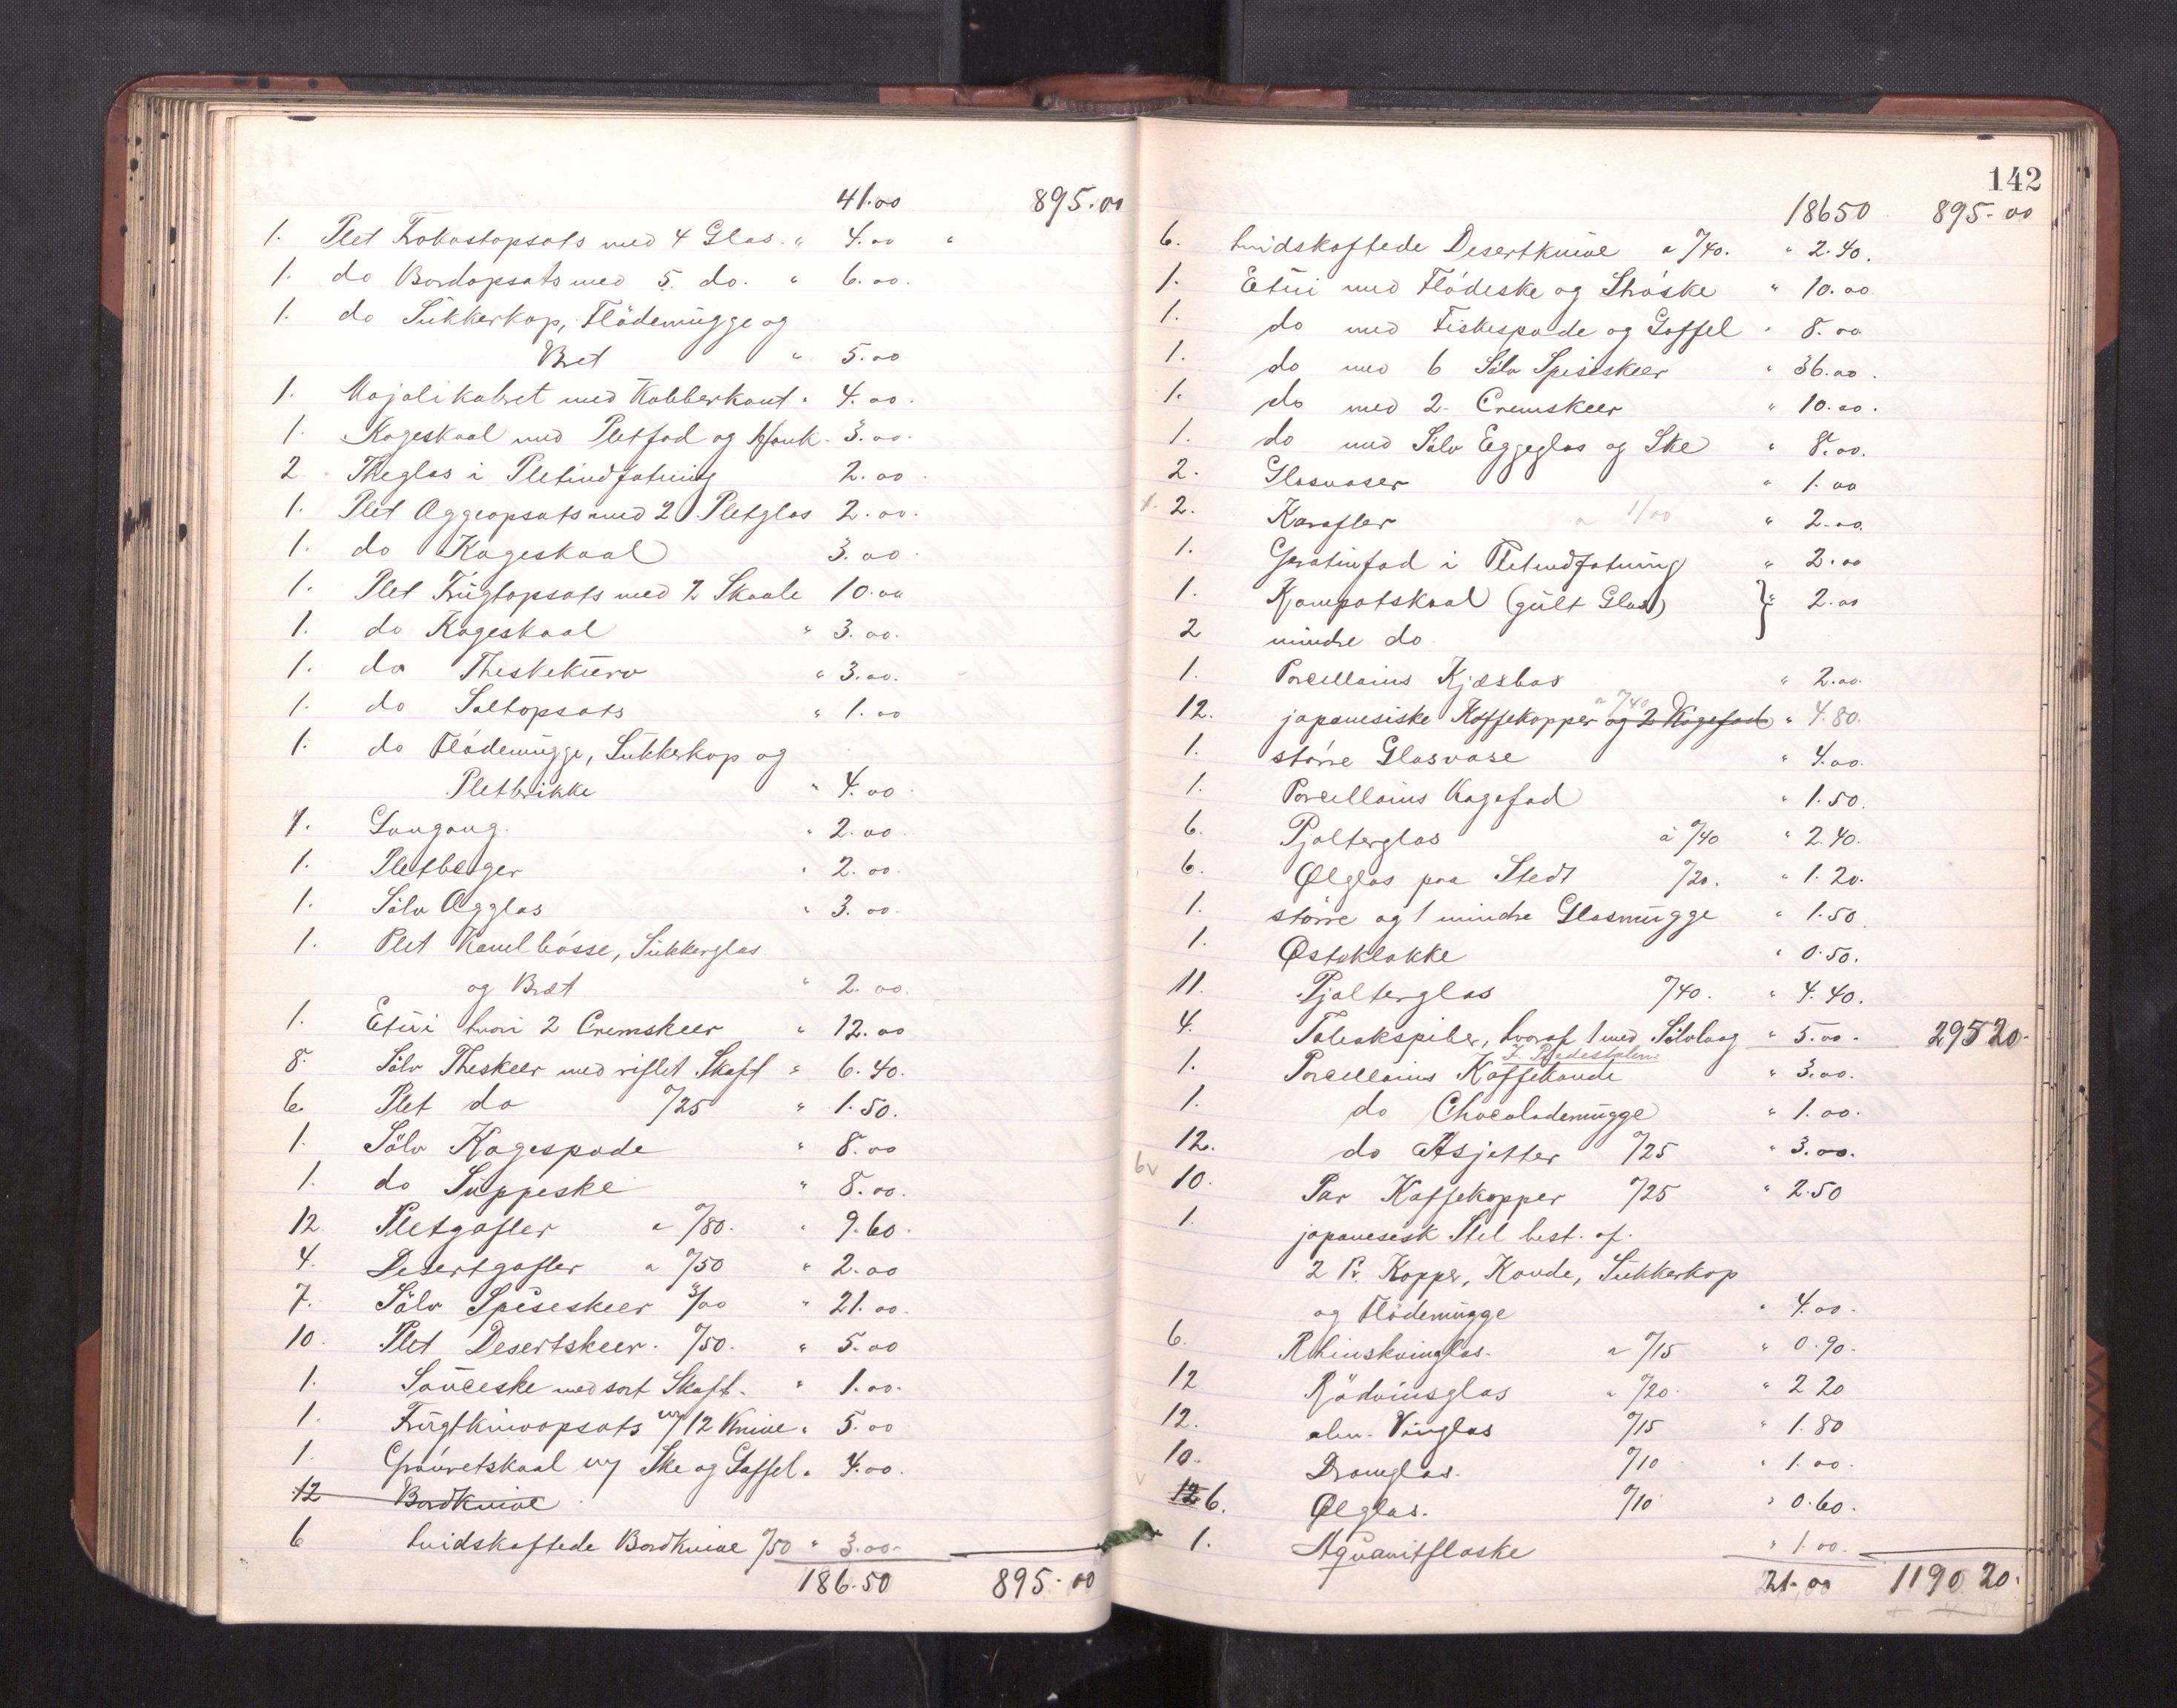 41.00 895.00
1. Plet Frokostopsats med 4 Glas. " 4.00 "
1. do Bordopsats med 5. do. " 6.00.
1. do Sukkerkop, Flødemugge og
Bret " 5.00
1. Majolikabret med Kobberkant " 4.00.
1. Kageskaal med Pletfod og Hank. 3.00.
2 Theglas i Pletindfatning 2.00.
1. Plet Æggeopsats med 2 Pletglas 2.00.
1. do Kageskaal 3.00.
1. Plet Frugtopsats med 2 Skaale 10.00
1. do Kageskaal " 3.00.
1. do Theskekurv " 3.00.
1. do Saltopsats " 1.00
1. do Flødemugge, Sukkerkop og
Pletbrikke " 4.00.
1. Gongong. " 2.00.
1. Pletbæger " 2.00.
1. Sølv Ægglas " 3.00.
1. Plet Kanelbøsse, Sukkerglas
og Bræt " 2.00.
1. Etui hvori 2 Cremskeer " 12.00
8. Sølv Theskeer med riflet Skaft " 6.40.
6 Plet do 0/25 " 1.50.
1. Sølv Kagespade " 8.00
1. do Suppeske " 8.00.
12 Pletgafler a 0/80. " 9.60.
4. Desertgafler a 0/50 " 2.00
7. Sølv Spiseskeer 3/00 " 21.00.
10. Plet Desertskeer. 0/50. " 5.00
1. Sauceske med sort Skaft. " 1.00.
1. Frugtknivopsats m/ 12 Knive " 5.00
1. Skaal m/ Ske og Gaffel " 4.00.
12 Bordknive
6 hvidskaftede Bordknive 0/50 " 3.00.
186.50 895.00
142
18650 895.00
6. hvidskaftede Desertknive a 0/40. " 2.40.
1. Etui med Flødeske og Strøske " 10.00
1. do med Fiskespade og Gaffel " 8.00
1. do med 6 Sølv Spiseskeer " 36.00.
1. do med 2 Cremskeer " 10.00.
1. do med Sølv Eggeglas og Ske " 8.00.
2. Glasvaser " 1.00
2. Karafler a 1/00 " 2.00
1. Gratinfad i Pletindfatning " 2.00
1. Kompotskaal (gult Glas) } " 2.00
2 mindre do
1. Porcellains Kjæxbas " 2.00.
a 0/40
12. japanesiske Kaffekopper og 2 Kagefad " 4.80.
1. større Glasvase " 4.00.
1. Porcellains Kagefad " 1.50.
6. Pjolterglas à 0/40 " 2.40.
6. Ølglas paa Stedt 0/20. " 1.20.
1. større og 1 mindre Glasmugge " 1.50.
1. Osteklokke " 0.50.
11. Pjolterglas 0/40. " 4.40.
4. Tobakspiber, hvoraf 1 med Sølvlaag " 5.00. 29520.
1. Porcellains Kaffekande " 3.00.
1. do Chocolademugge " 1.00.
12. do Asjetter 0/25 " 3.00.
10. Par Kaffekopper 0/25 " 2.50
1. japanesisk Stel best. af.
2 Pr. Kopper, Kande, Sukkerkop
og Flødemugge " 4.00.
6. Rhinskvinglas. a 0/15 " 0.90.
12 Rødvinsglas " 0/20. " 2 20
12. alm. Vinglas 0/15 " 1.80
10. Dramglas. 0/10 " 1.00.
12 6. Ølglas. 0/10 " 0.60.
1. Aquavitflaske " 1.00.
21.00 1190 20.